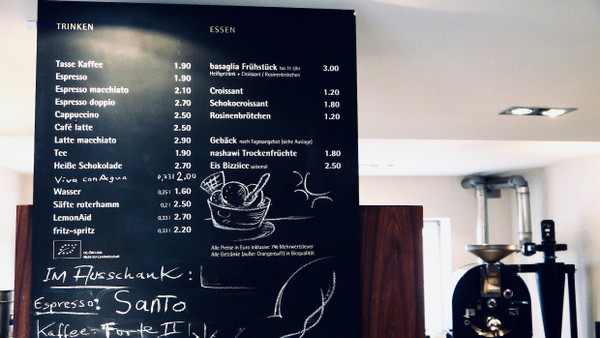 TRINKEN
Tasse Kaffee 1.90
Espresso 1.90
Espresso macchiato 2.10
Espresso doppio 2.70
Cappuccino 2.50
Café latte 2.50
Latte macchiato 2.90
Tee 1.90
Heiße Schokolade 2.70
Viva con Agua 0,33 l 2,00
Wasser 0,25 l 1.60
Säfte roterhamm 0,2 l 2.50
LemonAid 0,33 l 2.70
fritz-spritz 0,33 l 2.20
Im Ausschank:
Espresso: Santo
Kaffee: Forte II
ESSEN
basaglia Frühstück bis 11 Uhr 3.00
Heißgetränk + Croissant / Rosinenbrötchen
Croissant 1.20
Schokocroissant 1.80
Rosinenbrötchen 1.20
Gebäck nach Tagesangebot (siehe Auslage)
nashawi Trockenfrüchte 1.80
Eis Bizziice saisonal 2.50
Alle Preise in Euro inklusive 7% Mehrwertsteuer
Alle Getränke (außer Orangensaft) in Bioqualität